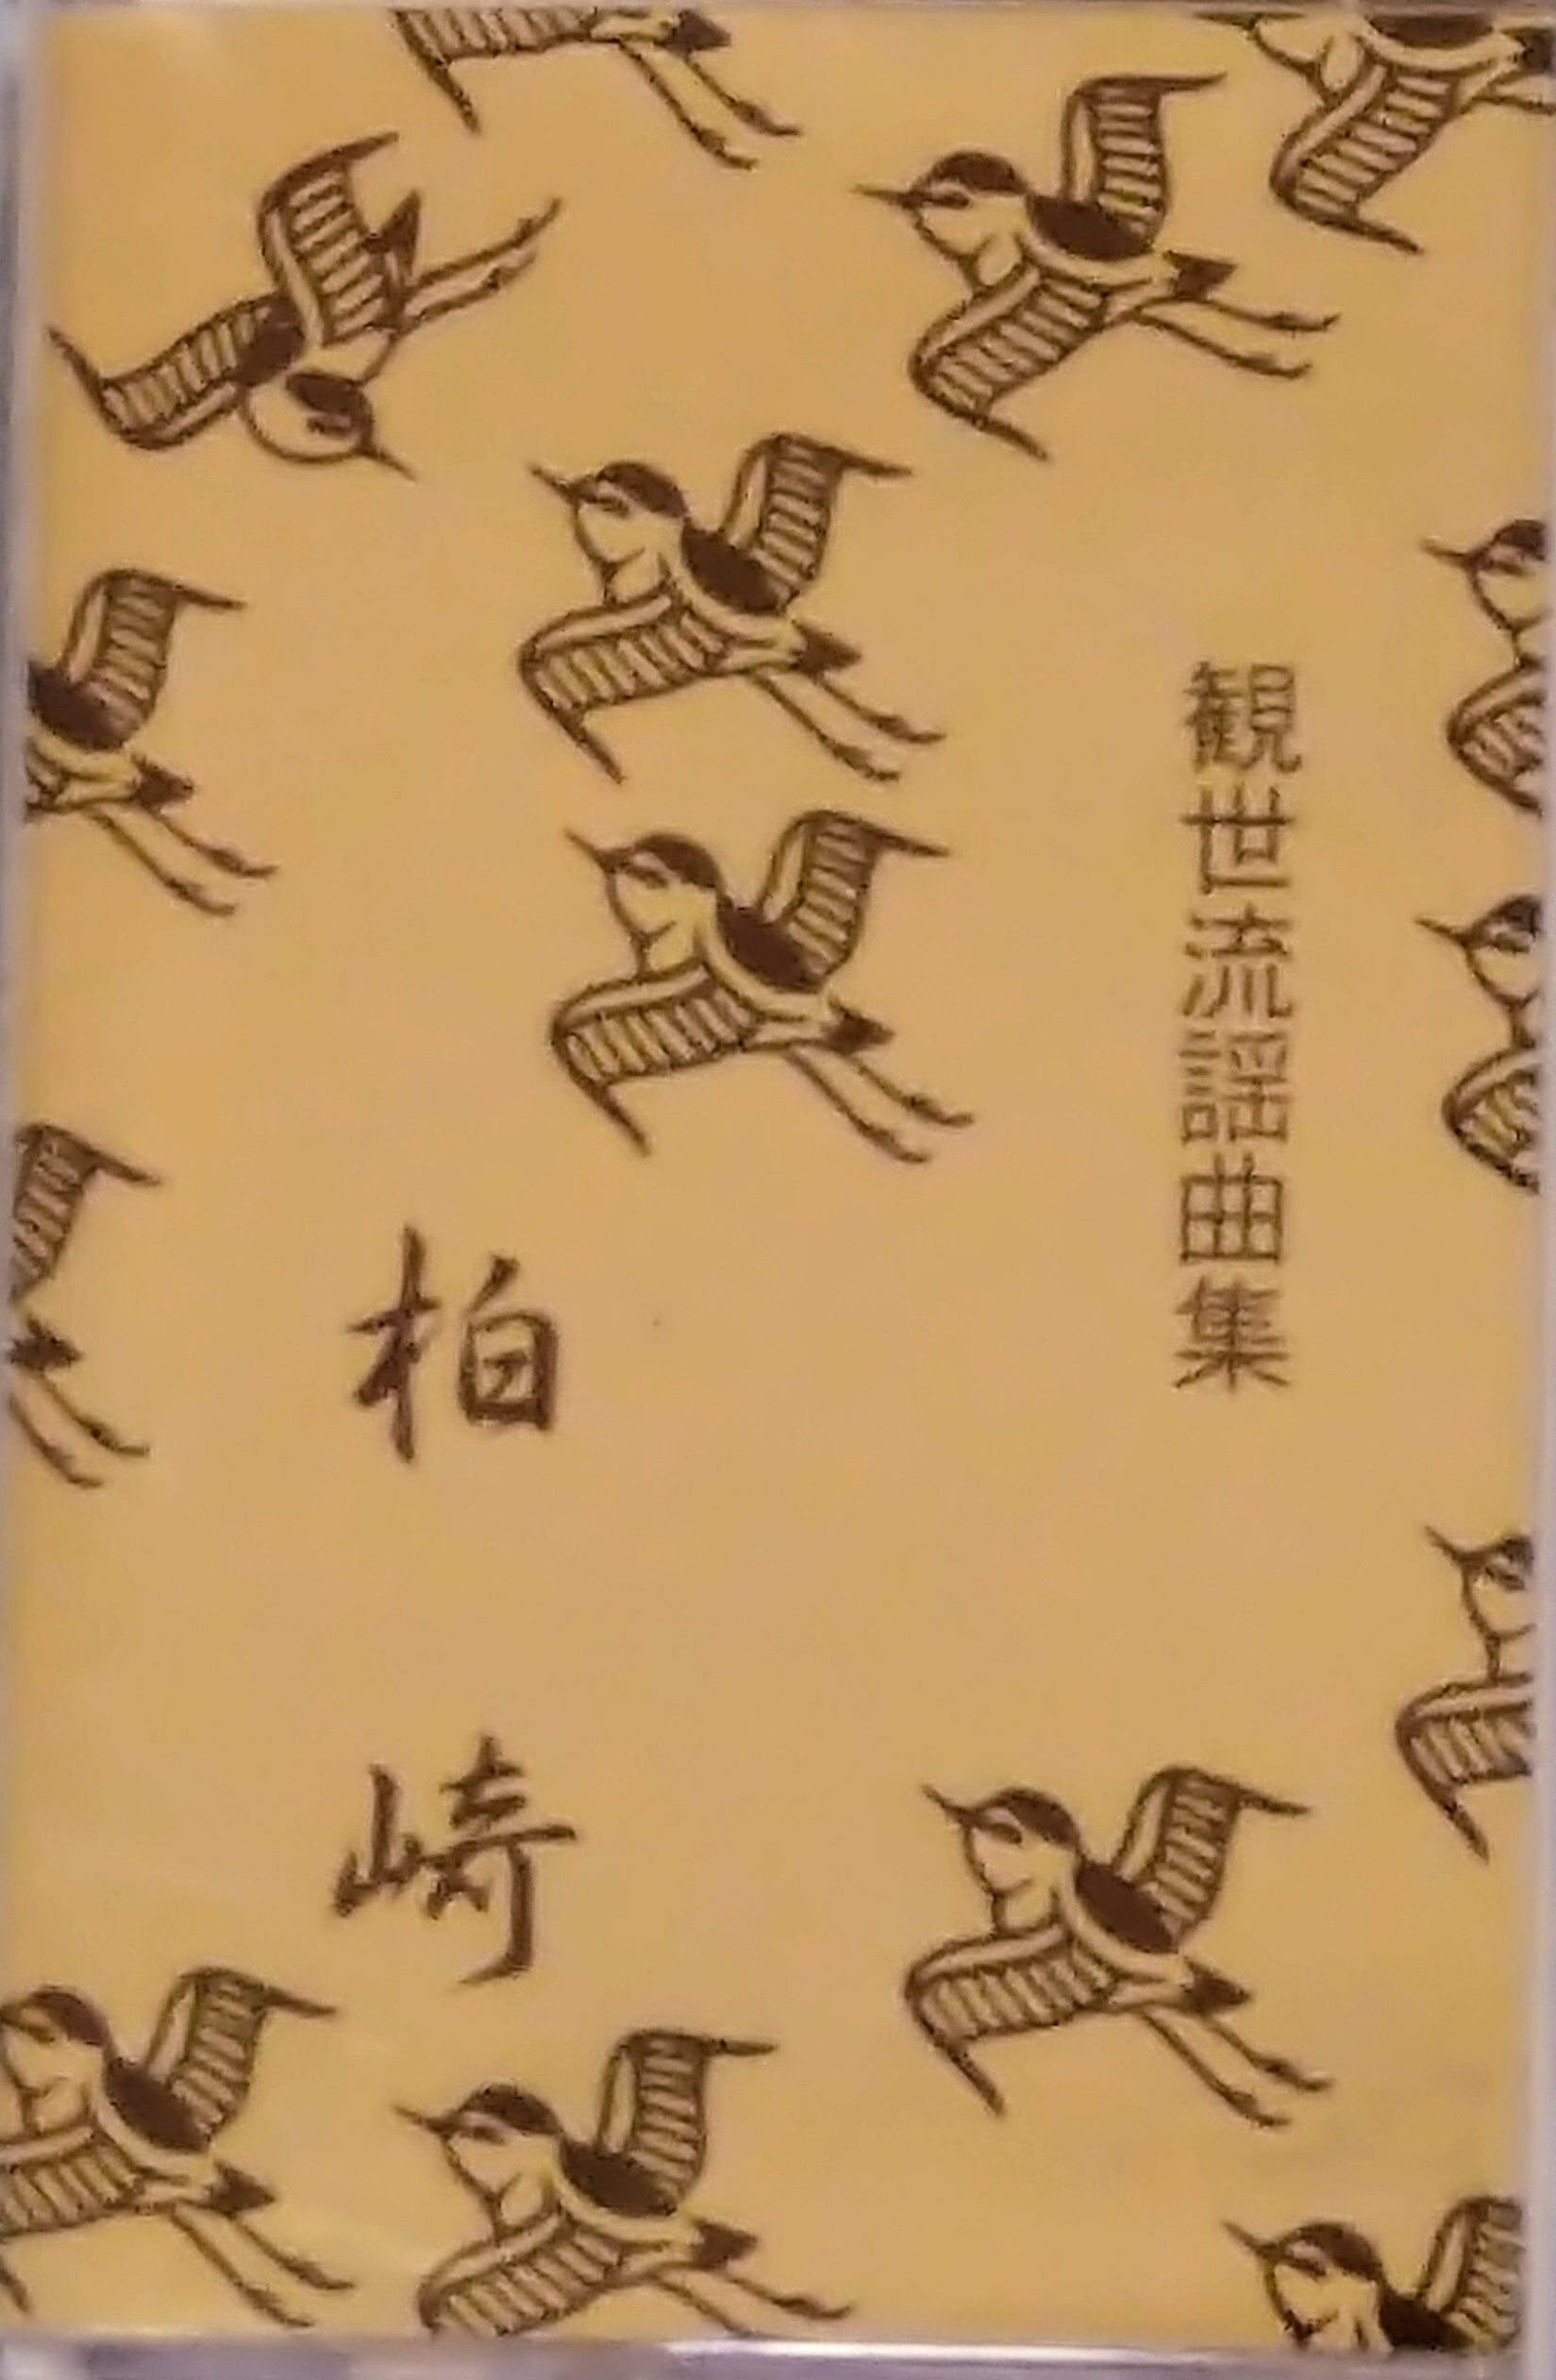 観世流謡曲集
柏崎